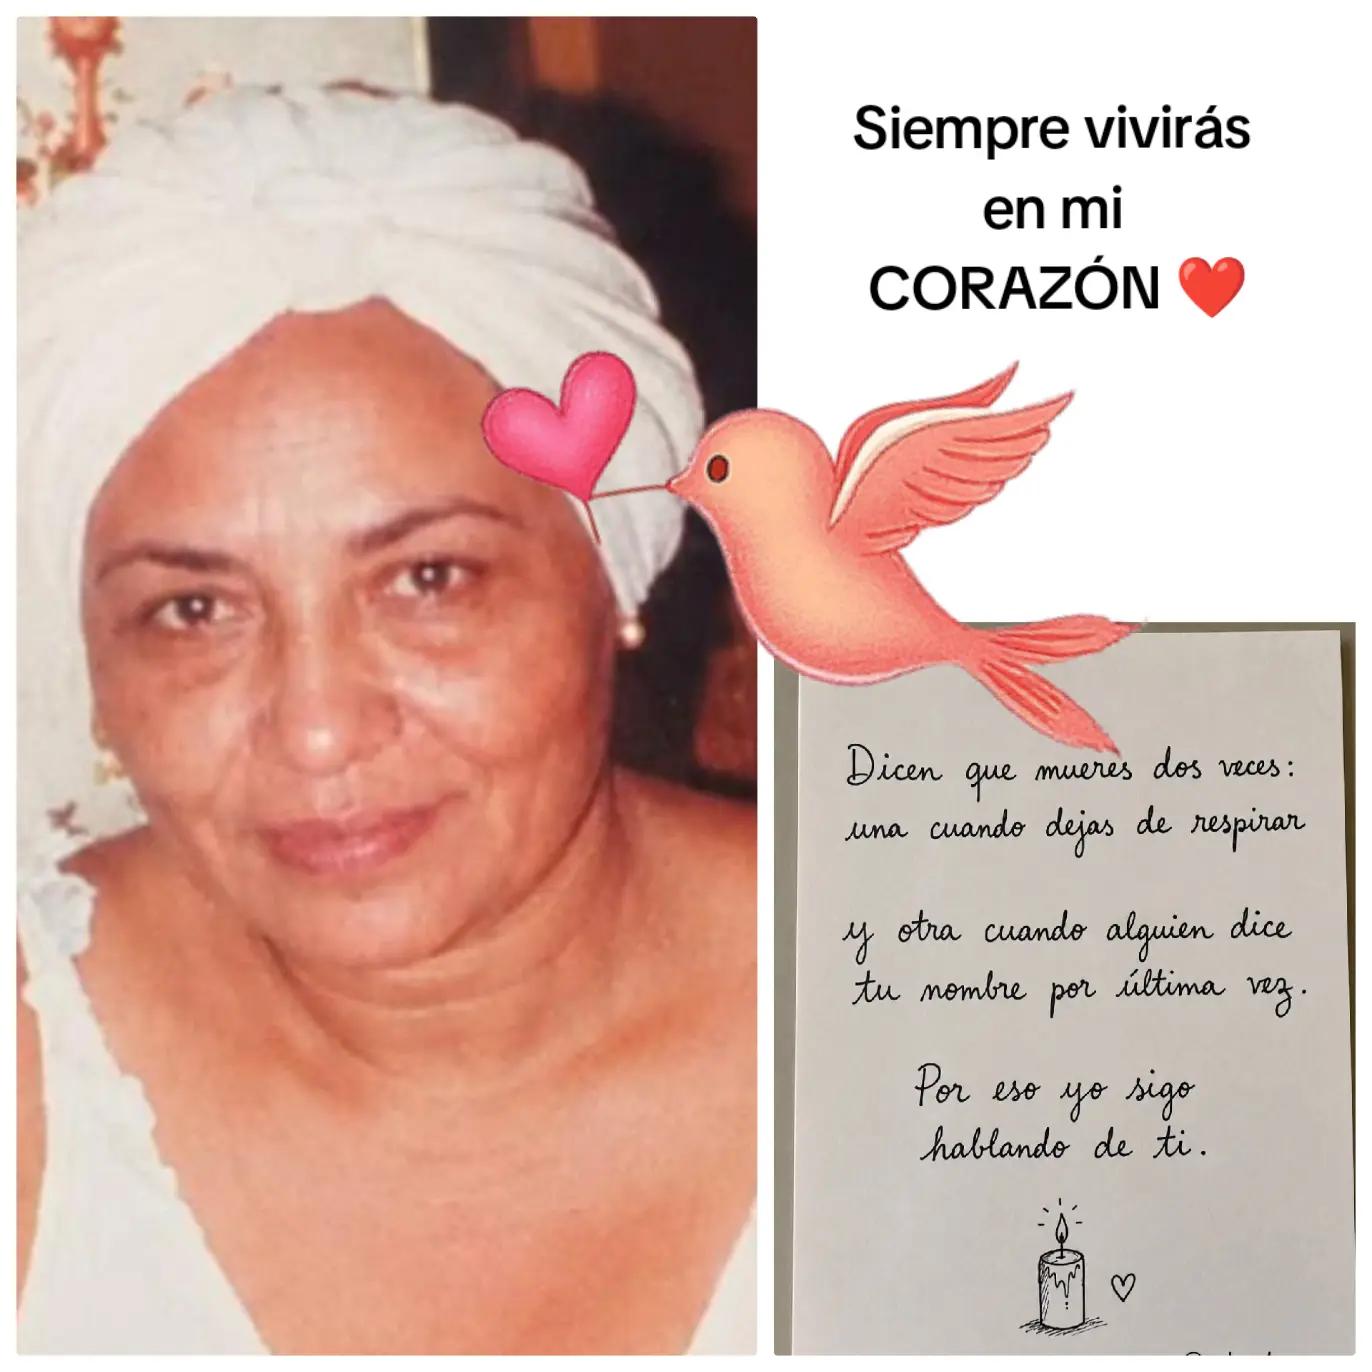 Siempre vivirás
en mi
CORAZÓN ❤️
Dicen que mueres dos veces:
una cuando dejas de respirar
y otra cuando alguien dice
tu nombre por última vez.
Por eso yo sigo
hablando de ti.